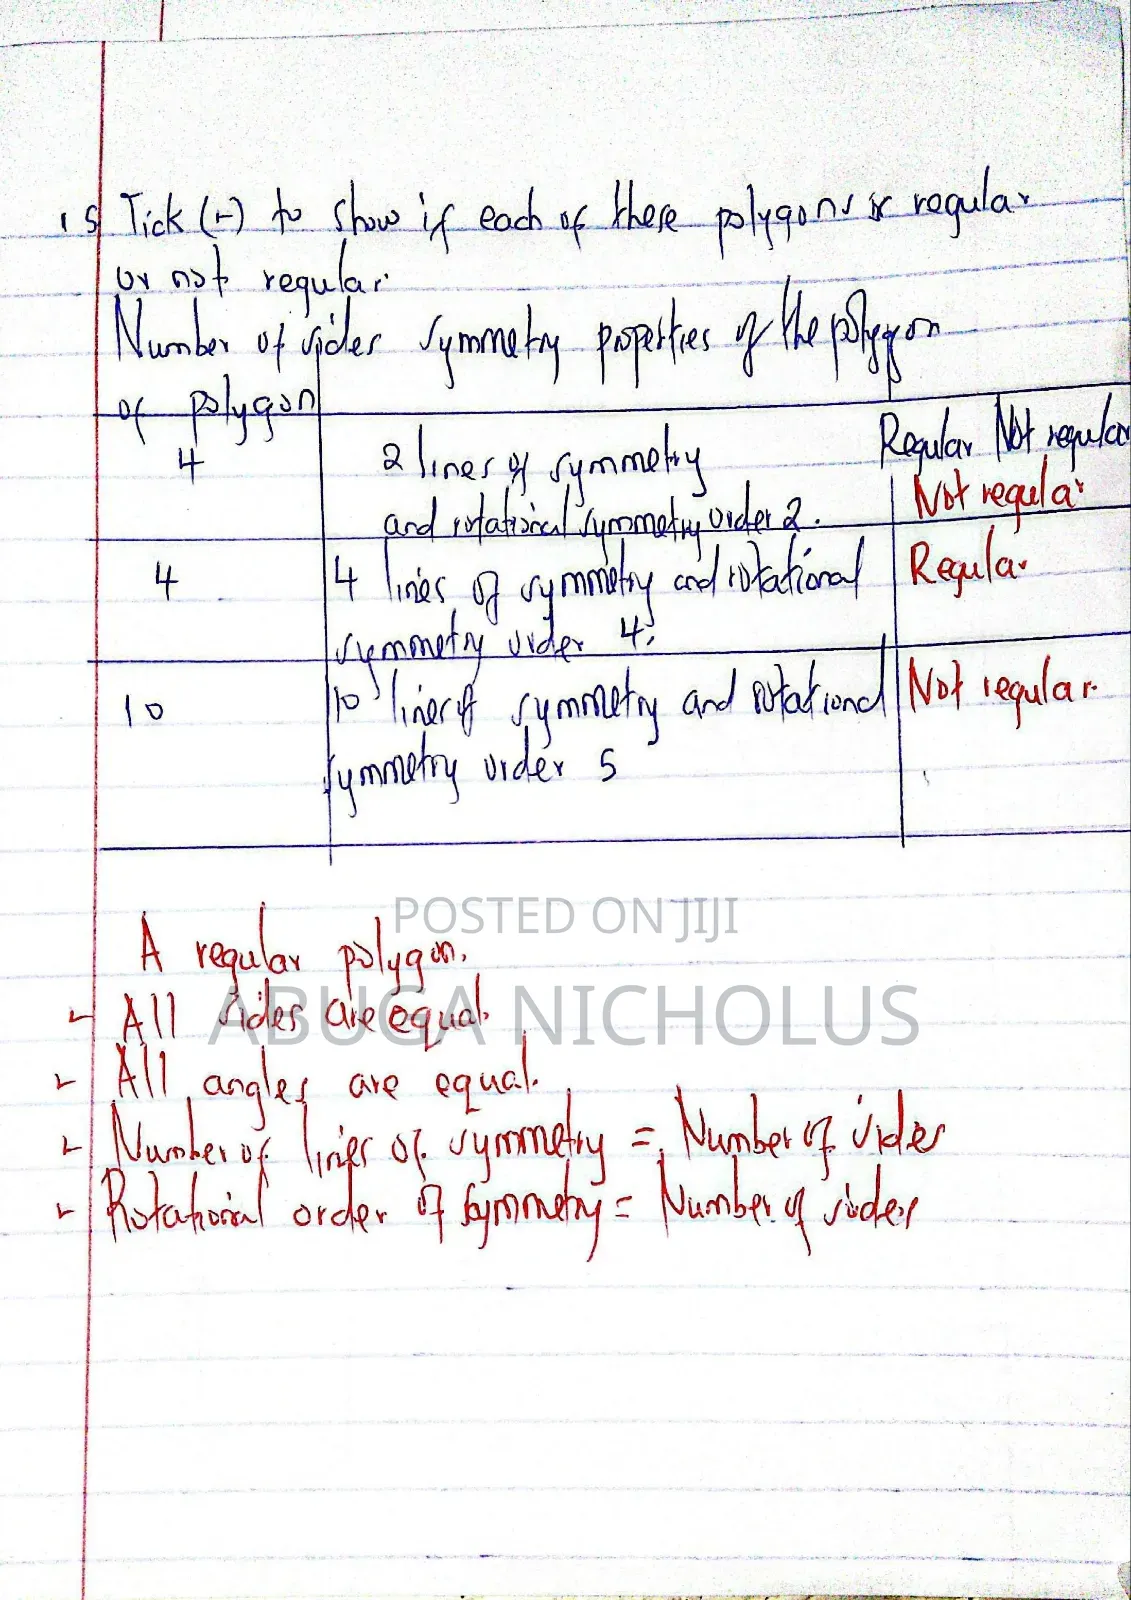 15 Tick (-) to show if each of these polygons is regular
or not regular.
Number of sides symmetry properties of the polygon
of polygon
4 2 lines of symmetry Regular Not regular
and rotational symmetry order 2. Not regular
4 4 lines of symmetry and rotational Regular
symmetry order 4.
10 10 lines of symmetry and rotational Not regular.
symmetry order 5
POSTED ON JIJI
A regular polygon.
ABUGA NICHOLUS
- All sides are equal.
- All angles are equal.
- Number of lines of symmetry = Number of sides
- Rotational order of symmetry = Number of sides